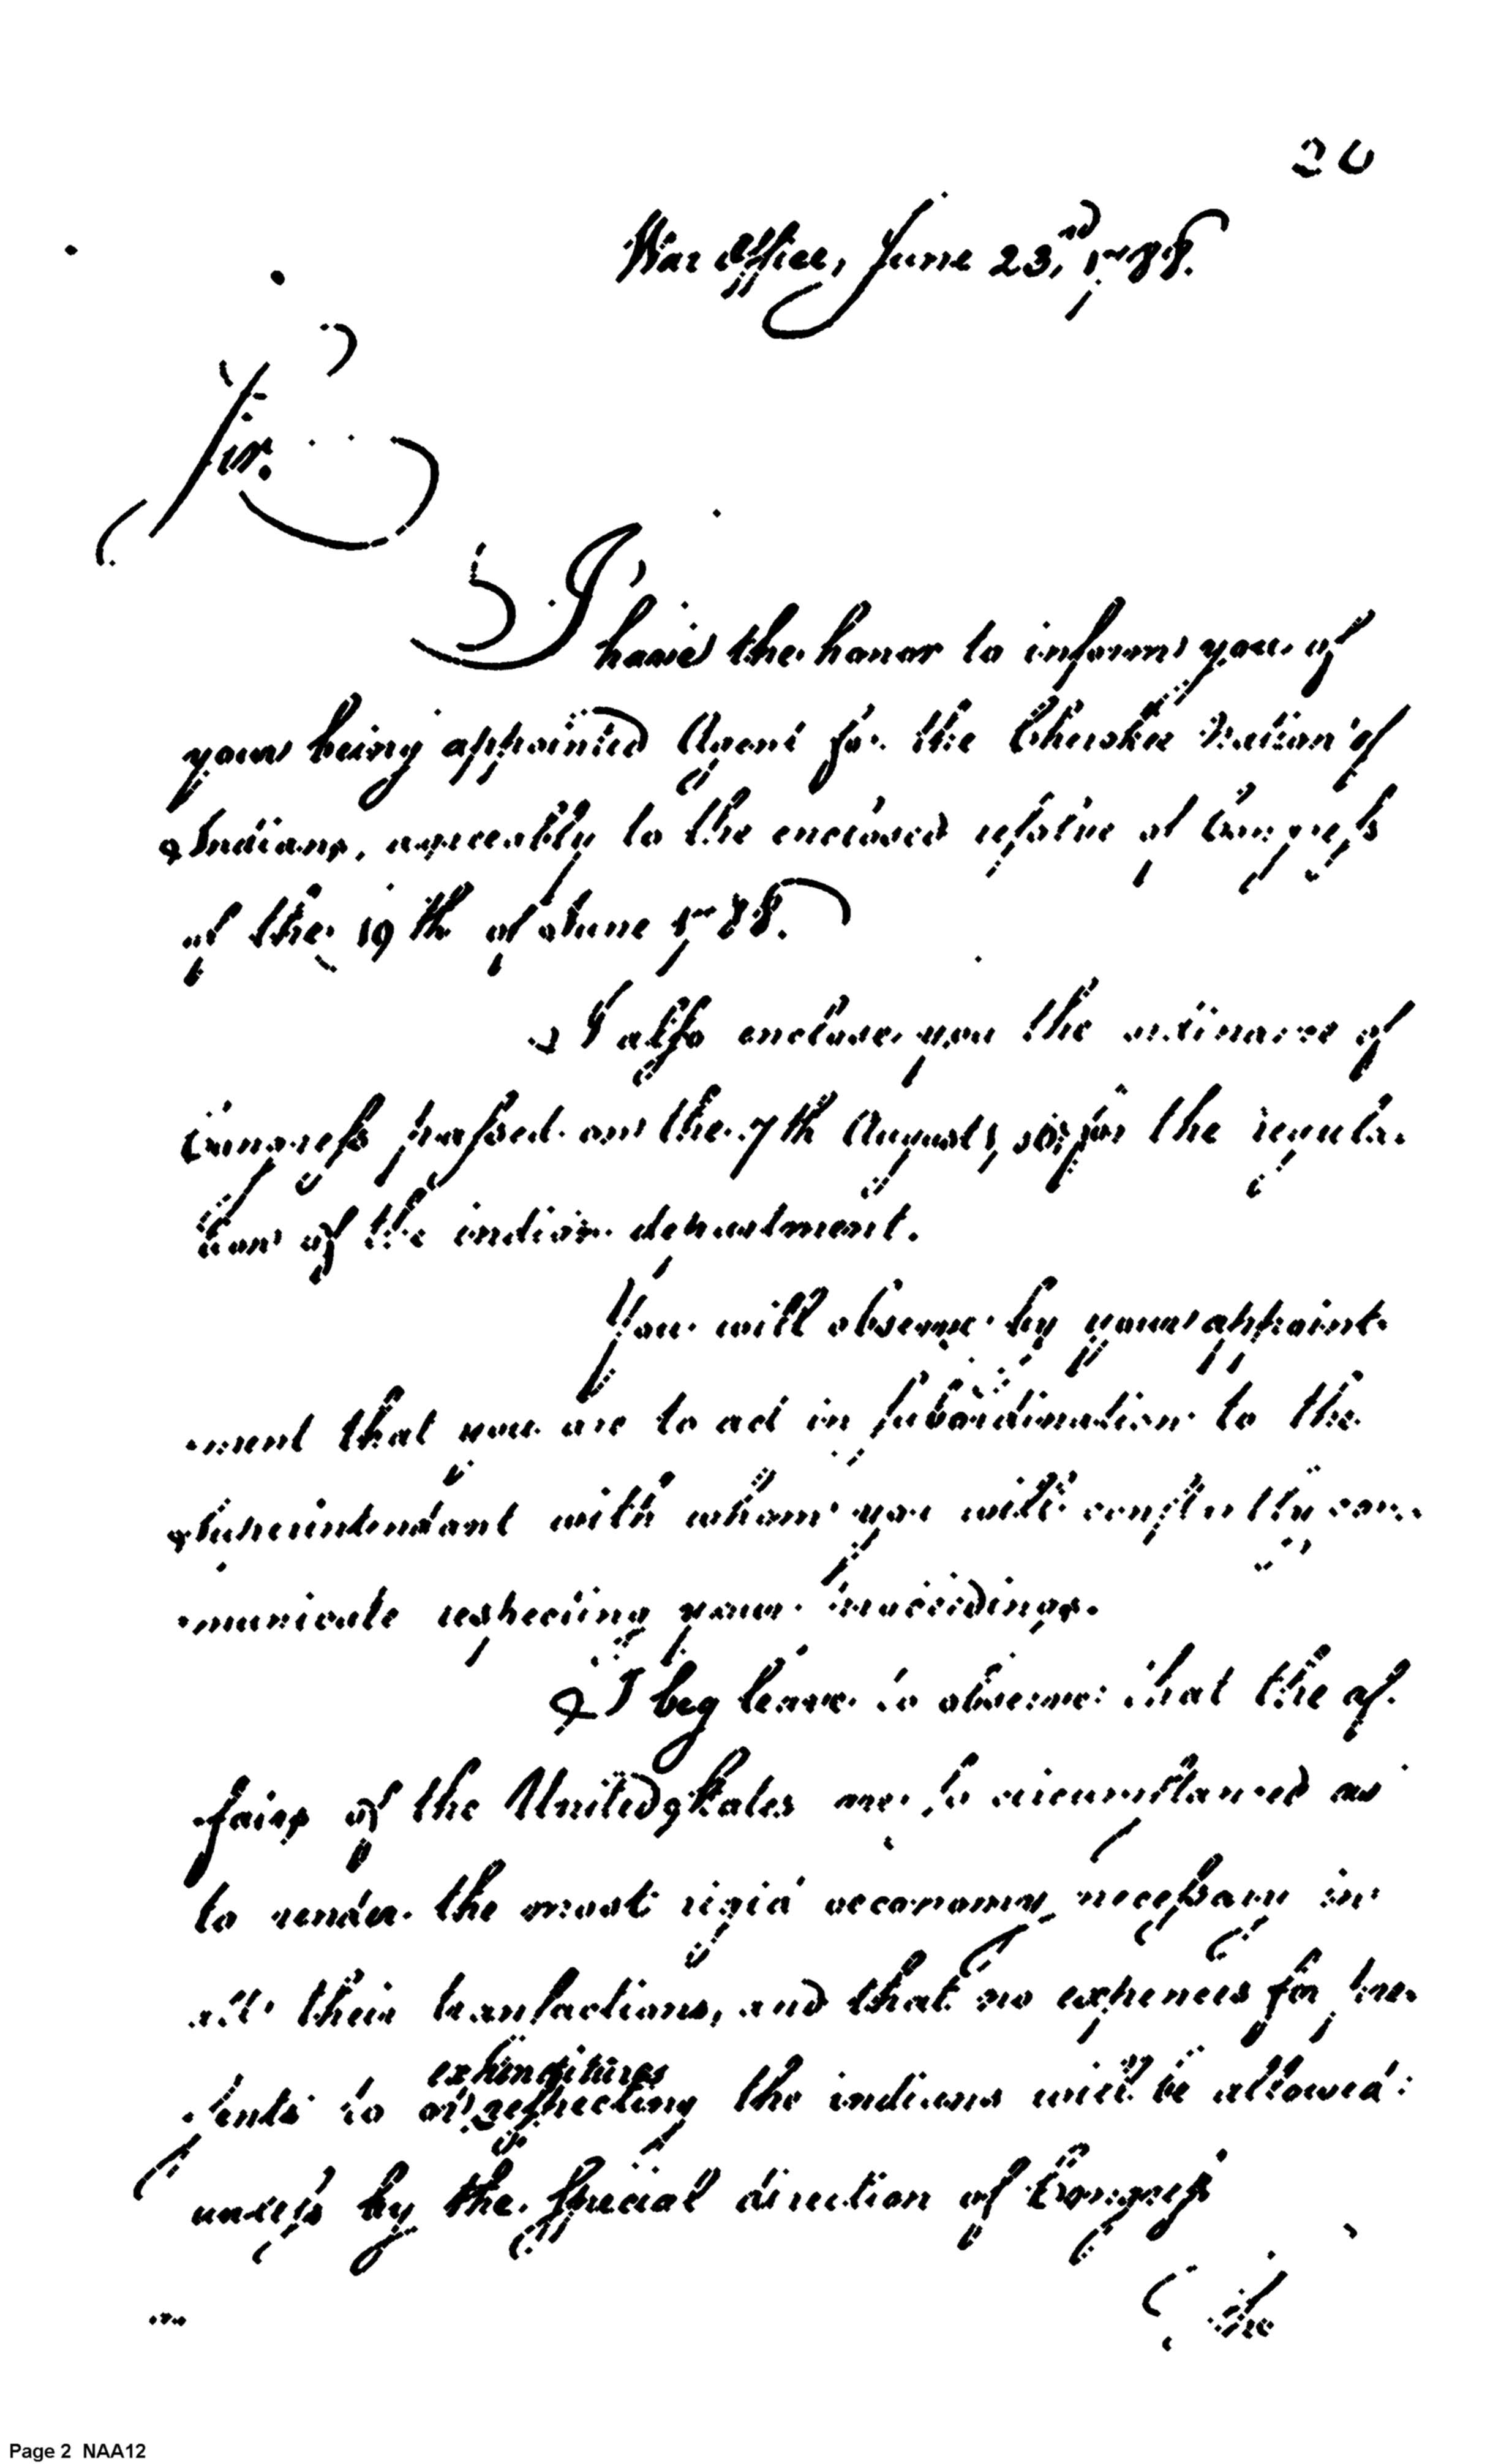 20
War Office, June 23.nd 1788.
Sir.
I have the honor to inform you of
your being appointed Agent for the Cherokee Nation of
Indians, agreeably to the enclosed resolve of Congress
of the 19th of June 1788.
I also enclose you the ordinance of
Congress passed on the 7th August, for the regula-
tion of the indian department.
You will observe by your appoint-
-ment that you are to act in subordination to the
Superintendant with whom you will constantly com-
-municate respecting your proceedings.
I beg leave to observe that the af-
-fairs of the United States are so circumstanced as
to render the most rigid oeconomy necessary in
all their transactions, and that no expences for pre-
expenditures
-sents to or respecting the indians will be allowed
unless by the special direction of Congress
The
Page 2 NAA12